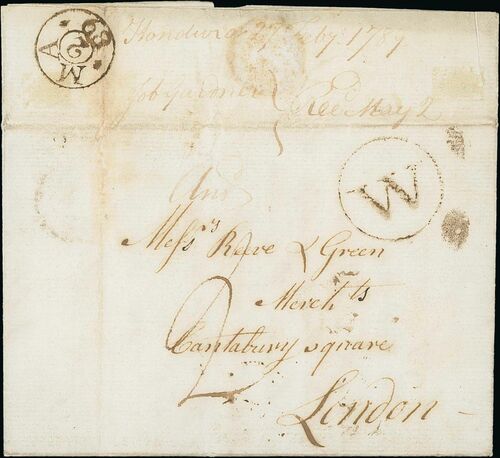 MA 2 89
Honduras 27 Feby. 1789
Job Gardner
Rec May 2
W
Ans
Messrs Reeve & Green
Merchts
2
Cantabury Square
London